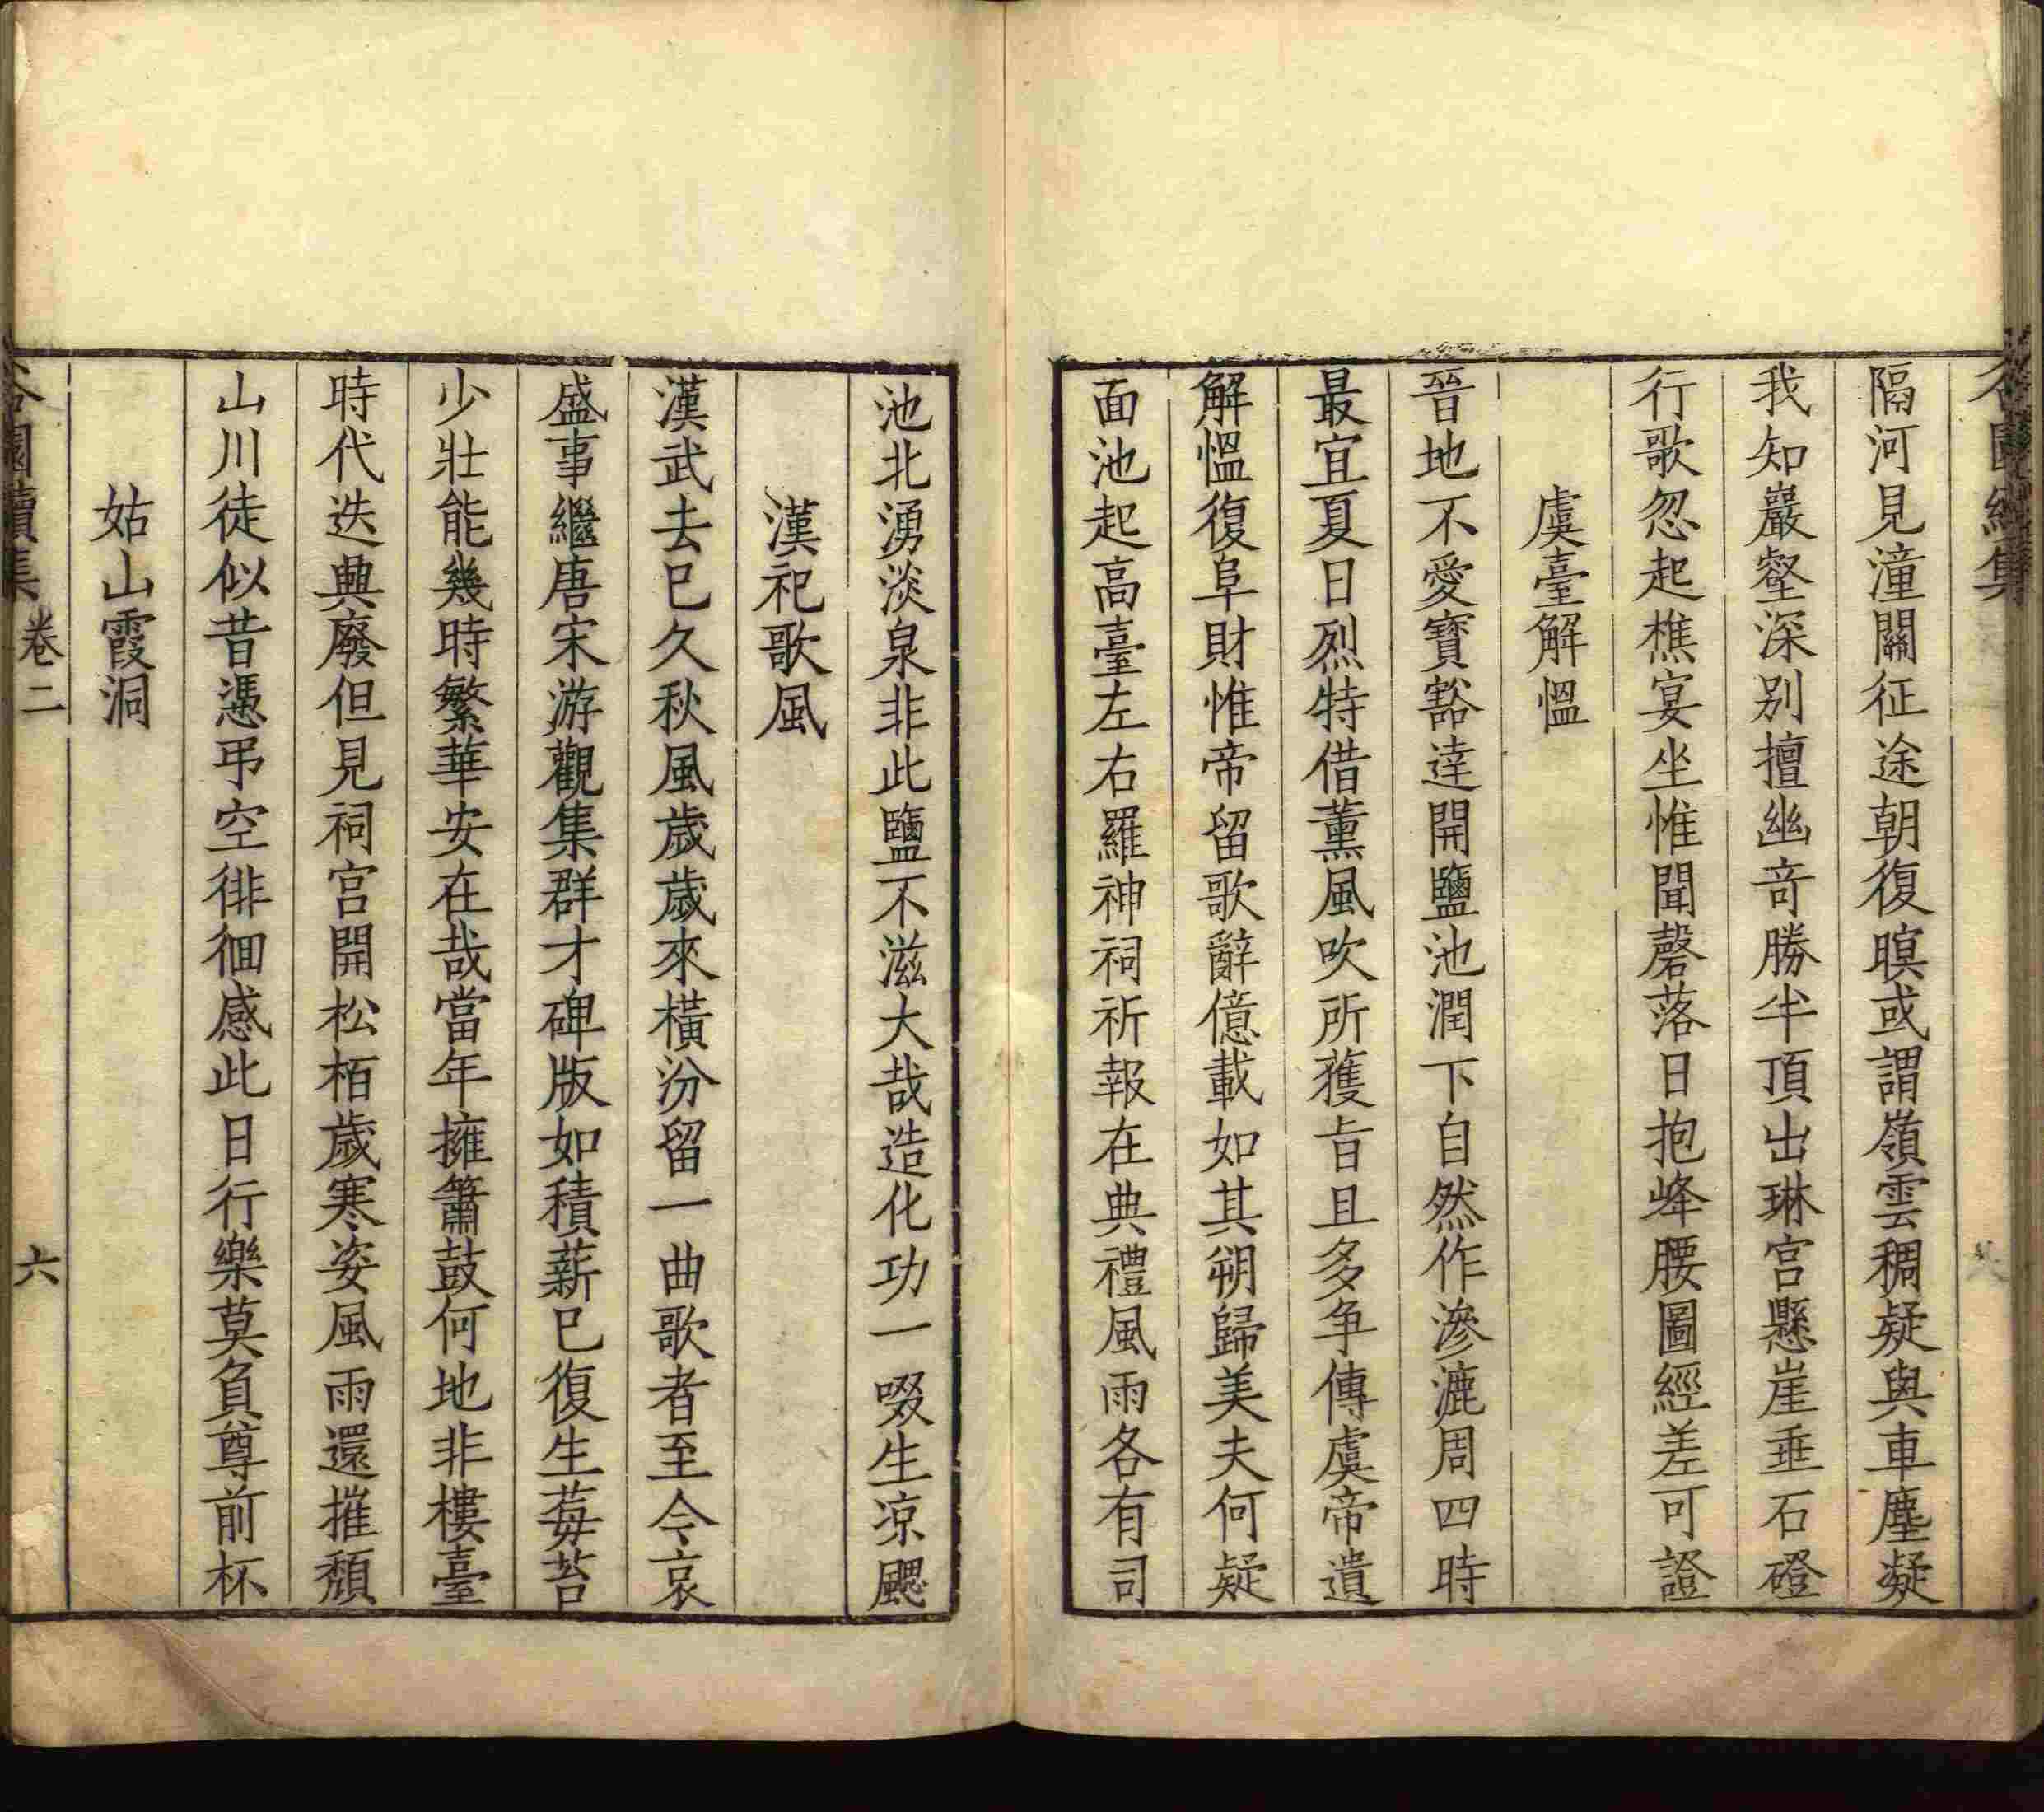 隔河見潼關征途朝復暝或謂嶺雲稠疑與車塵凝
我知巖壑深别擅幽奇勝半頂出琳宫懸崖垂石磴
行歌忽起樵宴坐惟聞磬落日抱峰腰圖經差可證
虞臺解愠
晉地不愛寶豁達開鹽池潤下自然作滲漉周四時
最宜夏日烈特借薰風吹所獲旨且多争傳虞帝遺
解愠復阜財惟帝留歌辭億載如其朔歸美夫何疑
面池起高臺左右羅神祠祈報在典禮風雨各有司
池北湧淡泉非此鹽不滋大哉造化功一啜生凉颸
漢祀歌風
漢武去已久秋風歲歲來横汾留一曲歌者至今哀
盛事繼唐宋游觀集群才碑版如積薪已復生莓苔
少壯能幾時繁華安在哉當年擁簫鼓何地非樓臺
時代迭興廢但見祠宫開松栢歲寒姿風雨還摧頽
山川徒似昔憑弔空徘徊感此日行樂莫負尊前杯
姑山霞洞
卷二
六